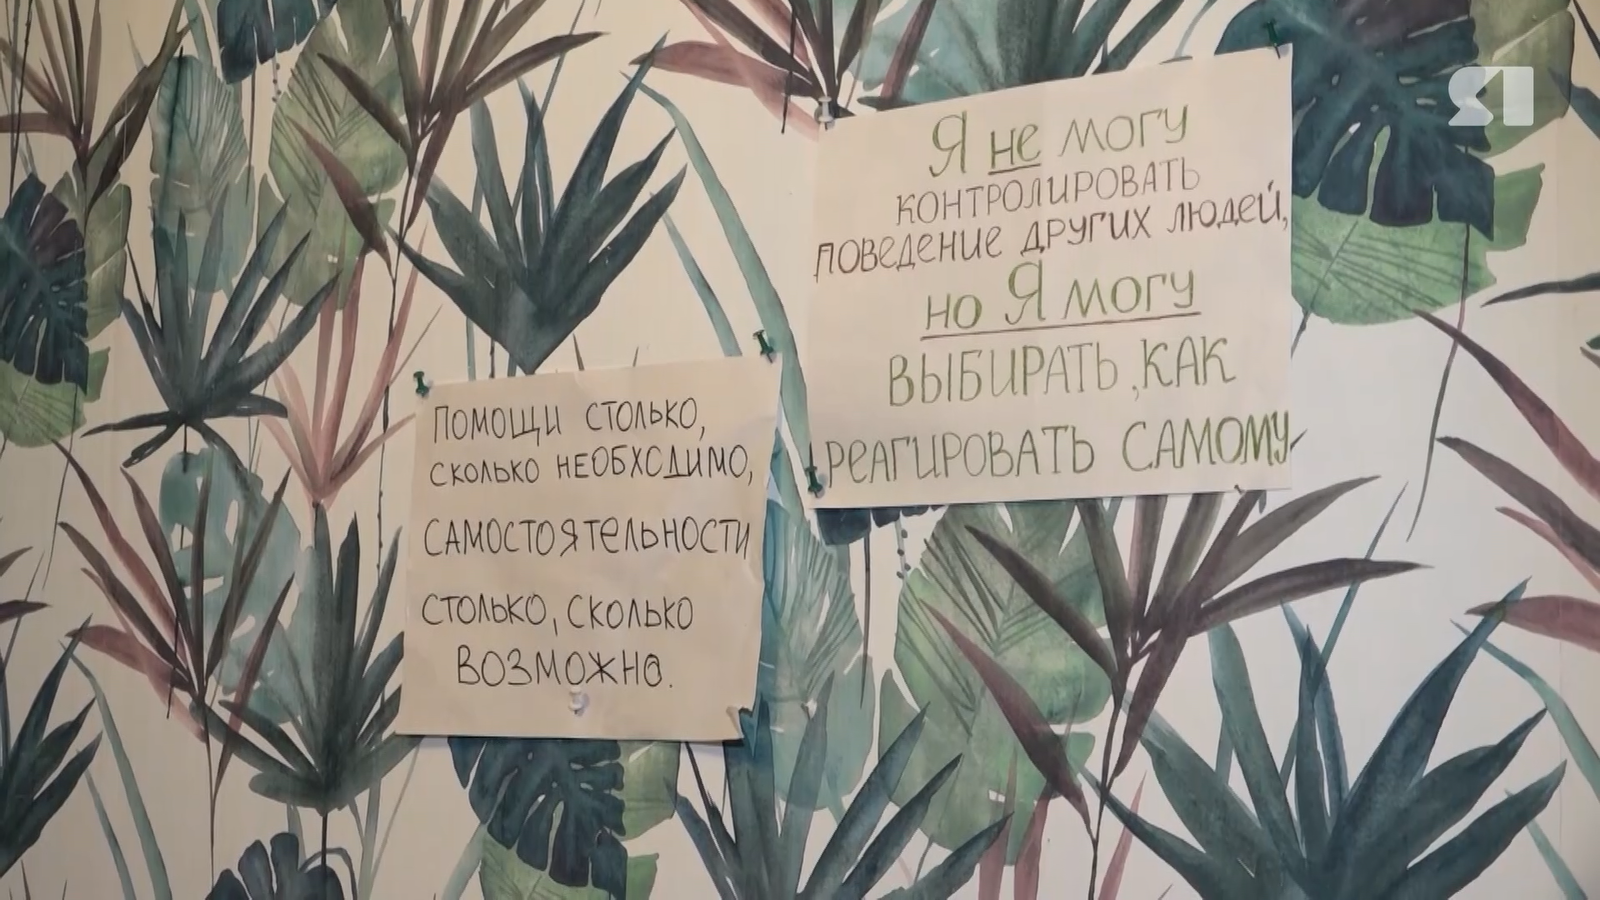 Я не могу
контролировать
поведение других людей,
но Я могу
выбирать, как
реагировать самому
Помощи столько,
сколько необходимо,
самостоятельности
столько, сколько
возможно.